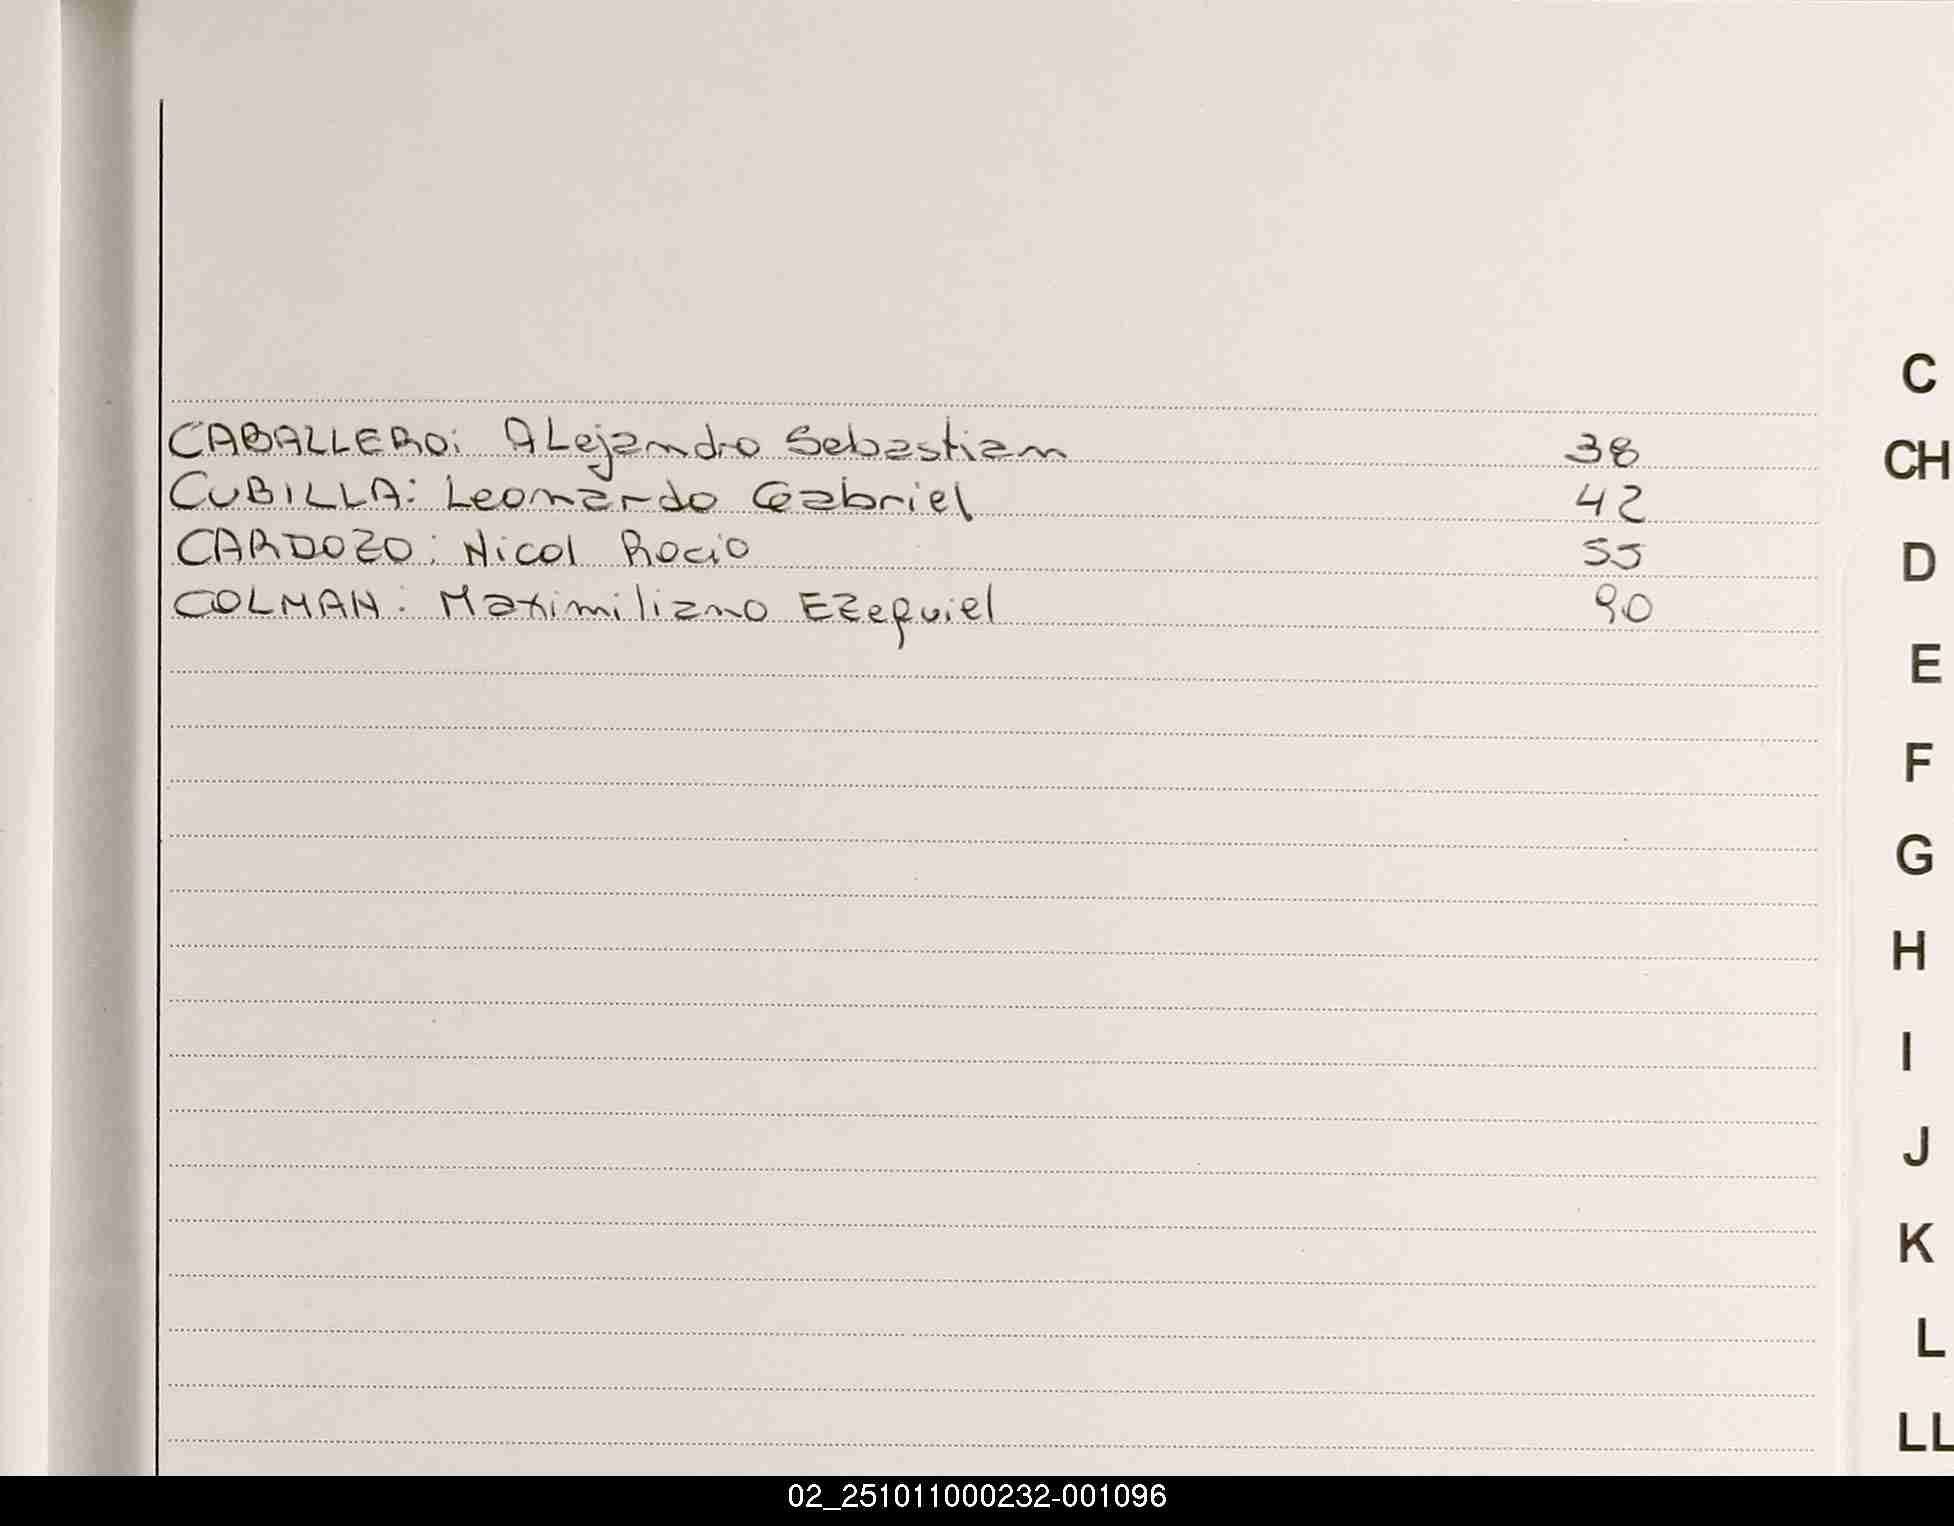 CABALLERO: Alejandro Sebastian 38
CUBILLA: Leonardo Gabriel 42
CARDOZO: Nicol Rocio 55
COLMAN: Maximiliano Ezequiel 90
C
CH
D
E
F
G
H
I
J
K
L
LL
02_251011000232-001096